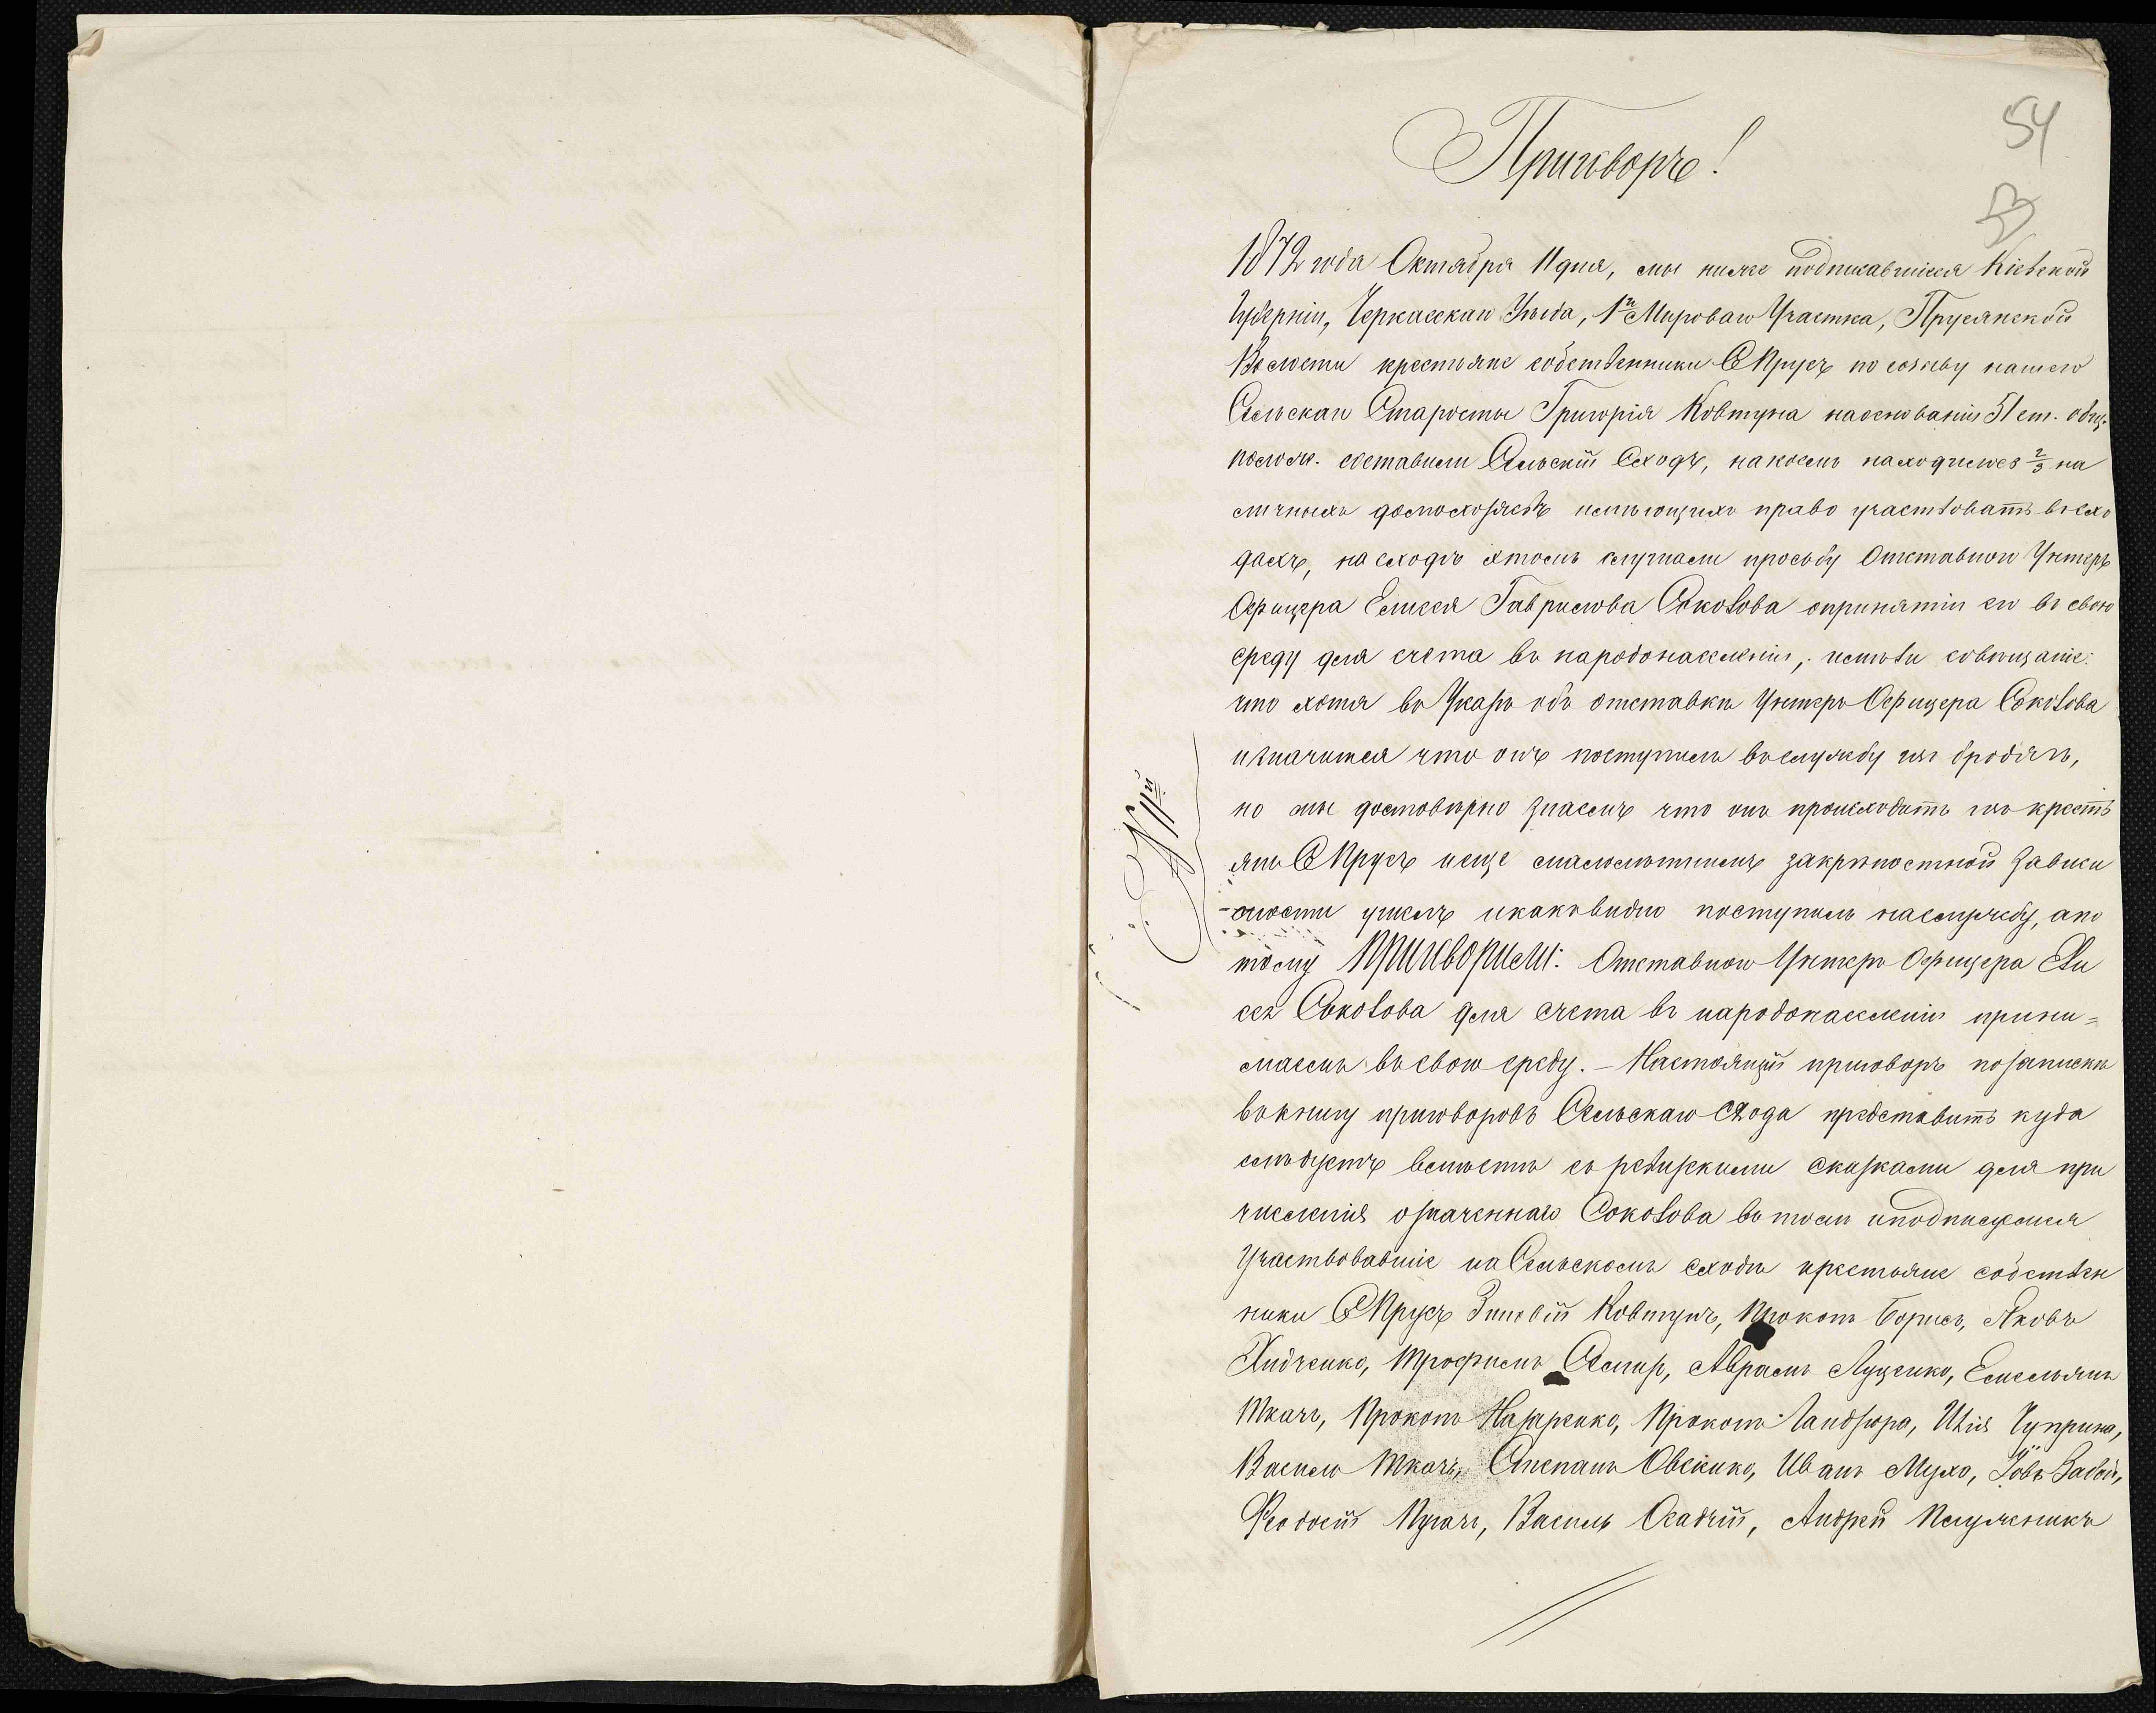 54
Приговоръ!
53
1872 года Октября 11 дня, мы ниже подписавшіеся Кіевской
Губерніи, Черкасскаго Уѣзда, 1го Мироваго Участка, Прусянской
Волости крестьяне собственники С Прусъ по созыву нашего
Сельскаго Старосты Григорія Ковтуна наоснованіи 51 ст. общ.
полож. составили Сельскій Сходъ, накоемъ находилось 2/3 на
личныхъ домохозяевъ имѣющихъ право участвовать въ схо
дахъ, на сходѣ этомъ слушали просьбу Отставного Унтеръ
Офицера Елисея Гаврилова Соколова опринятіи его въ свою
среду для счета въ народонаселеніи, имѣли совѣщаніе:
что хотя въ Указѣ объ отставкѣ Унтеръ Офицера Соколова
изначится что онъ поступилъ вслужбу изъ бродягъ,
но мы достовѣрно знаемъ что онъ происходитъ изъ кресть
янъ С Прусъ иеще малолѣтнимъ закрѣпостной зависи
-мости ушелъ икаквидно поступилъ наслужбу, апо
тому приговорили: Отставного Унтеръ Офицера Ели
сея Соколова для счета въ народонаселеніи прини=
маемъ въ свою среду. – Настоящій приговоръ позапискѣ
въ книгу приговоровъ Сельскаго Схода представить куда
слѣдуетъ вмѣстѣ съ ревизскими сказками для при
численія означеннаго Соколова въ томъ иподписуемся
Участвовавшіе на Сельскомъ сходѣ крестьяне собствен
ники С Прусъ Зиновій Ковтунъ, Прокопъ Борисъ, Яковъ
Трофимъ Аврамъ Луценко, Емельянъ
Ткачъ, Прокопъ Назаренко, Прокопъ Гандзюра, Илія Чуприна,
Василь Ткачъ, Степанъ Овсіенко, Иванъ Муха, Іовъ
Феодосій Пугачъ, Василь Осадчій, Андрей
№ 11й